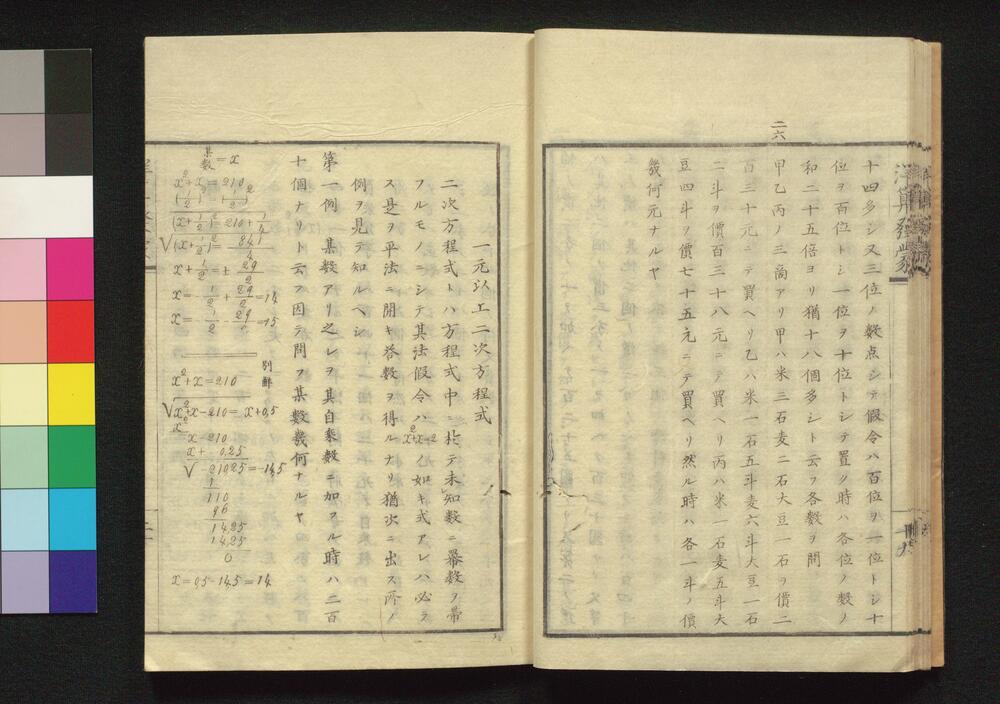 洋算發蒙
十四多シ又三位ノ數点シテ假令ハ百位ヲ一位トシ十
位ヲ百位トシ一位ヲ十位トシテ置ク時ハ各位ノ數ノ
和二十五倍ヨリ猶十八個多シト云フ各數ヲ問
二六
甲乙丙ノ三商アリ甲ハ米三石麦二石大豆一石ヲ價二
百三十元ニテ買ヘリ乙ハ米一石五斗麦六斗大豆一石
二斗ヲ價百三十八元ニテ買ヘリ丙ハ米一石麦五斗大
豆四斗ヲ價七十五元ニテ買ヘリ然ル時ハ各一斗ノ價
幾何元ナルヤ
一元以上二次方程式
二次方程式トハ方程式中ニ於テ未知數ニ冪數ヲ帶
フルモノニシテ其法假令ハx²+x=2 如キ式アレハ必ラ
ス是ヲ平法ニ開キ答數ヲ得ルナリ猶次ニ出ス所ノ
例ヲ見テ知ルヘシ
第一例 某數アリ之レヲ其自乘數ニ加フル時ハ二百
十個ナリト云フ因テ問フ某數幾何ナルヤ
某數=x
x²+x=210
(1/2)²=(1/2)²
(x+1/2)²=210+1/4
√(x+1/2)²=841/4
x+1/2=±29/2
x=-1/2+29/2=14
x=-1/2-29/2=-15
別解
x²+x=210
√x²+x-210=x+0,5
x²
x-210
x+0,25
√-210,25=-14,5
1
110
96
14,25
14,25
0
x=0,5-14,5=14